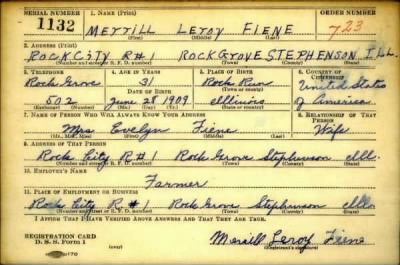 SERIAL NUMBER 1. NAME (Print) ORDER NUMBER
1132 MERRILL LEROY FIENE 723
(First) (Middle) (Last)
2. ADDRESS (Print)
ROCK CITY R#1 ROCK GROVE STEPHENSON ILL.
(Number and street or R. F. D. number) (Town) (County) (State)
3. TELEPHONE 4. AGE IN YEARS 5. PLACE OF BIRTH 6. COUNTRY OF CITIZENSHIP
Rock Grove 31 Rock Run United States
DATE OF BIRTH (Town or county)
502 June 28 1909 Illinois of America
(Exchange) (Number) (Mo.) (Day) (Yr.) (State or country)
7. NAME OF PERSON WHO WILL ALWAYS KNOW YOUR ADDRESS 8. RELATIONSHIP OF THAT PERSON
Mrs Evelyn Fiene Wife
(Mr., Mrs., Miss) (First) (Middle) (Last)
9. ADDRESS OF THAT PERSON
Rock City R#1 Rock Grove Stephenson Ill.
(Number and street or R. F. D. number) (Town) (County) (State)
10. EMPLOYER'S NAME
Farmer
11. PLACE OF EMPLOYMENT OR BUSINESS
Rock City R#1 Rock Grove Stephenson Ill.
(Number and street or R. F. D. number) (Town) (County) (State)
I AFFIRM THAT I HAVE VERIFIED ABOVE ANSWERS AND THAT THEY ARE TRUE.
REGISTRATION CARD
D. S. S. Form 1 (over) Merrill Leroy Fiene
(Registrant's signature)